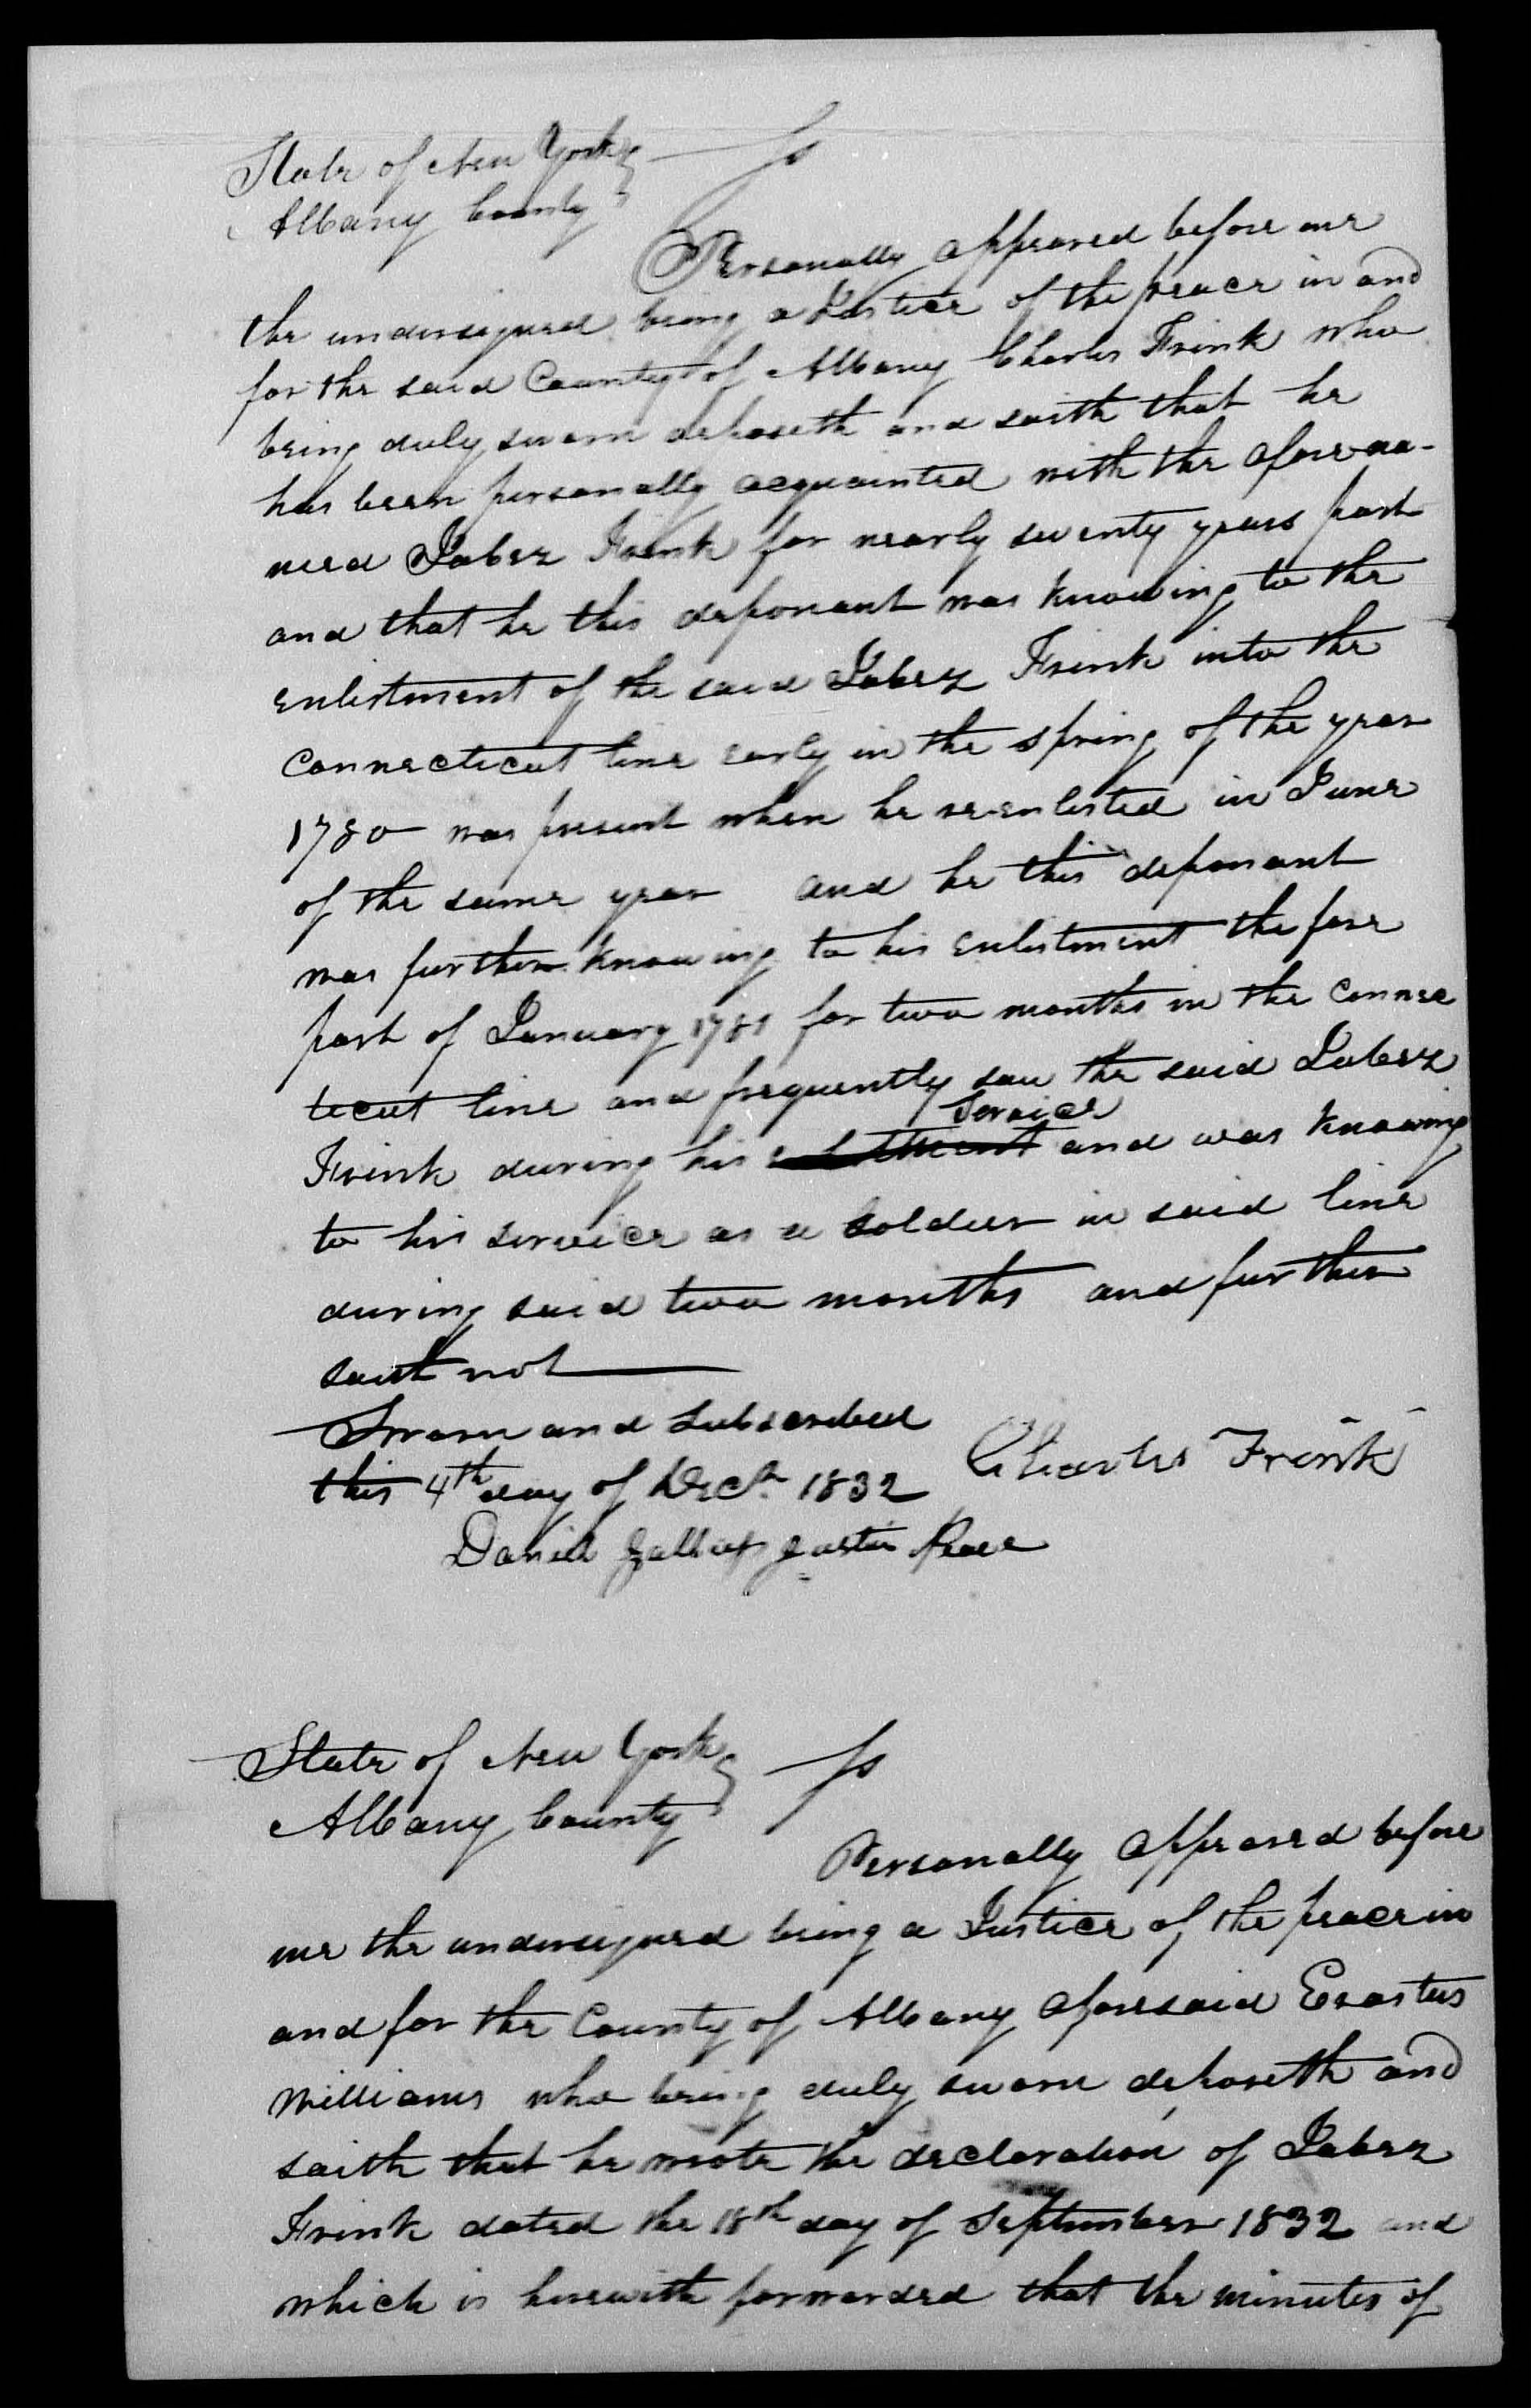 State of New York } ss
Albany County }
Personally appeared before me
the undersigned being a Justice of the peace in and
for the said County of Albany Charles Frink who
being duly sworn deposeth and saith that he
has been personally acquainted with the aforena-
med Jabez Frink for nearly seventy years past
and that he this deponant was knowing to the
enlistment of the said Jabez Frink into the
Connecticut line early in the spring of the year
1780 was present when he reenlisted in June
of the same year and he this deponant
was further knowing to his enlistment the fore
part of January 1781 for two months in the Connec
ticut line and frequently saw the said Jabez
service
Frink during his enlistment and was knowing
to his service as a soldier in said line
during said two months and further
saith not
Sworn and Subscribed
this 4th day of Decr. 1832 Charles Frink
Daniel Gallup Justice Peace
State of New York } ss
Albany County }
Personally appeared before
me the undersigned being a Justice of the peace in
and for the County of Albany aforesaid Erastus
Williams who being duly sworn deposeth and
saith that he wrote the declaration of Jabez
Frink dated the 18th day of September 1832 and
which is herewith forwarded that the minutes of